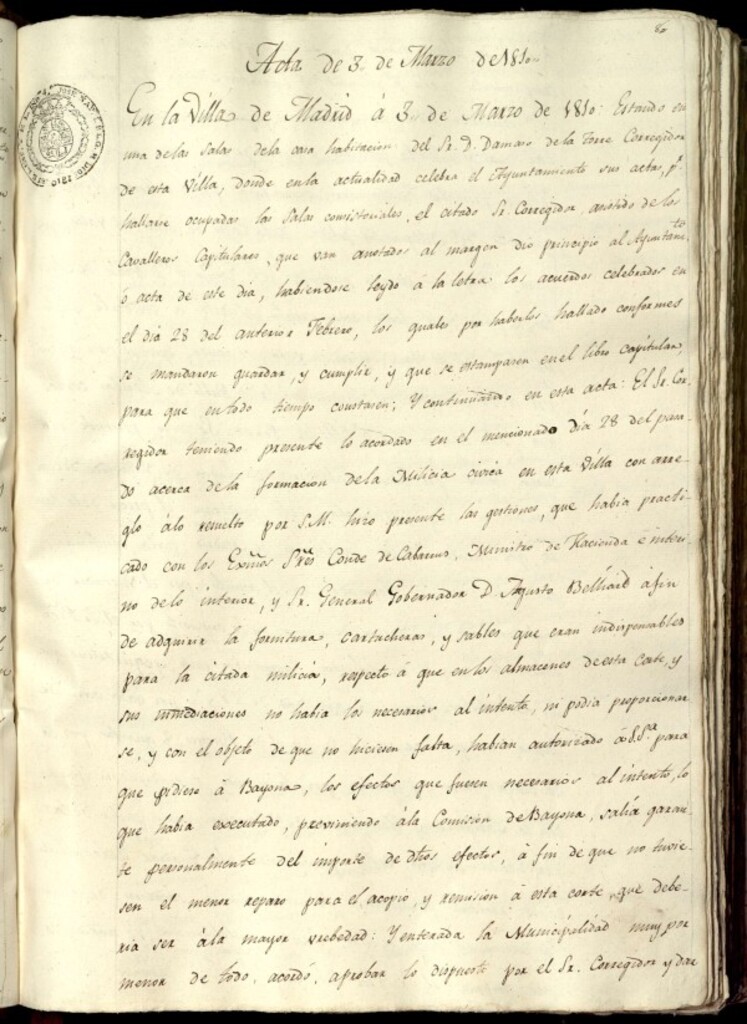 80
Acta de 3 de Marzo de 1810
En la Villa de Madrid á 3 de Marzo de 1810: Estando en
una de las Salas de la casa habitacion del Sr. D. Damaso de la Torre Corregidor
de esta Villa, donde en la actualidad celebra el Ayuntamiento sus actas, pr.
hallarse ocupadas las Salas consistoriales, el citado Sr. Corregidor, asistido de los
Cavalleros Capitulares, que van anotados al margen dio principio al Ayuntamto.
ó acta de este dia, habiendose leydo á la letra los acuerdos celebrados en
el dia 28 del anterior Febrero, los quales por haberlos hallado conformes
se mandaron guardar, y cumplir, y que se estamparen en el libro capitular,
para que en todo tiempo constasen; Y continuando en esta acta: El Sr. Cor-
regidor teniendo presente lo acordado en el mencionado dia 28 del pasa-
do acerca de la formacion de la Milicia civica en esta Villa con arre-
glo álo resuelto por S.M. hizo presente las gestiones, que habia practi-
cado con los Exmos. Sres. Conde de Cabarrus, Ministro de Hacienda é interi-
no de lo interior, y Sr. General Gobernador D. Agusto Belliard á fin
de adquirir la fornitura, cartucheras, y sables que eran indispensables
para la citada milicia, respecto á que en los almacenes de esta Corte, y
sus inmediaciones no habia los necesarios al intento, ni podia proporcionar
se, y con el objeto de que no hiciesen falta, habian autorizado á S.Sa. para
que pidiese á Bayona, los efectos que fuesen necesarios al intento, lo
que habia executado, previniendo ála Comision de Bayona, salia garan-
te personalmente del importe de dhos efectos, á fin de que no tuvie-
sen el menor reparo para el acopio, y remision á esta corte, que debe-
ria ser ála mayor brebedad: Y enterada la Municipalidad muy por
menor de todo, acordó, aprobar lo dispuesto por el Sr. Corregidor y dar